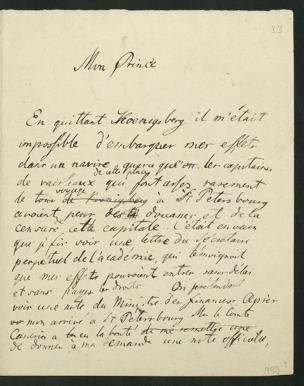 33
Mon Prince
En quittant Koenigsberg il m'était
impossible d'embarquer mes effets
dans un navire, parce que les capitaines
de vaisseaux qui font assez rarement
de cette place
le voyage à St Petersbourg
avaient peur des douanes et de la
censure de cette capitale. C'était en vain
que je fis voir une lettre du Secrétaire
perpétuel de l'academie, qui témoignait
que mes effets pouvaient entrer sans délai
et sans payer les droits. On prétendit
voir une note du Ministre des finances. Après
mon arrivée à St Petersbourg Mr le Comte
Cancrin a eu la bonté
de donner à ma demande une note officielle,